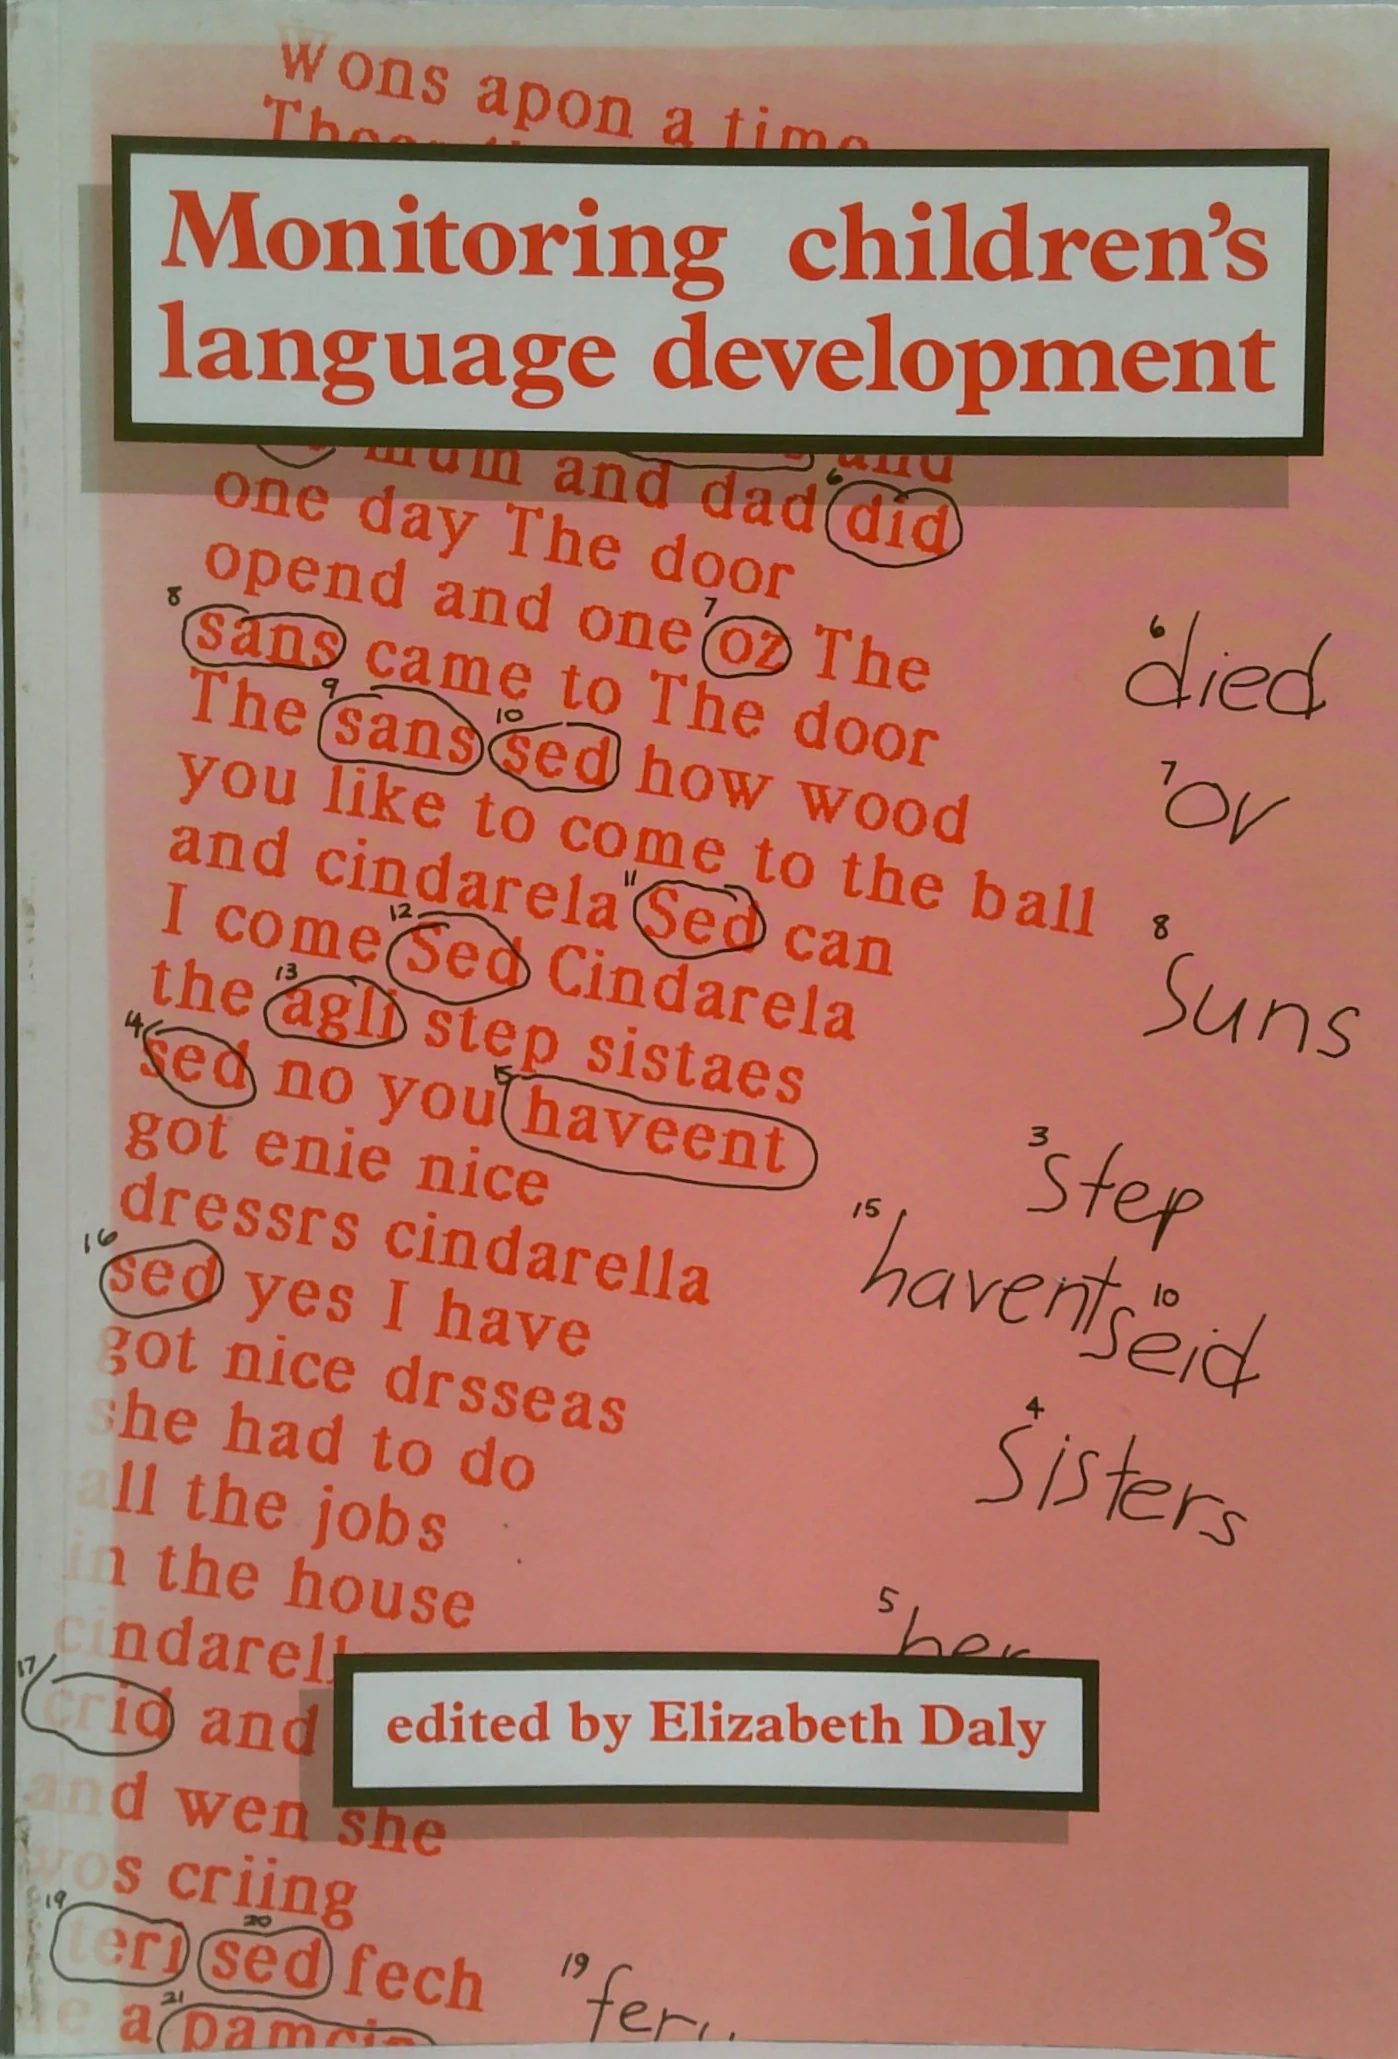 Wons apon a time
Monitoring children's
language development
mum and dad 6 did
one day The door
opend and one 7 oz The
8 sans came to The door
The 9 sans 10 sed how wood
you like to come to the ball
and cindarela 11 Sed can
I come 12 Sed Cindarela
the 13 agli step sistaes
14 sed no you 15 haveent
got enie nice
dressrs cindarella
16 sed yes I have
got nice drsseas
she had to do
all the jobs
in the house
cindarell
17 crid and
and wen she
wos criing
19 teri 20 sed fech
a 21 pamcin
6 died
7 ov
8 suns
3 step
15 havent
10 seid
4 sisters
5 her
edited by Elizabeth Daly
19